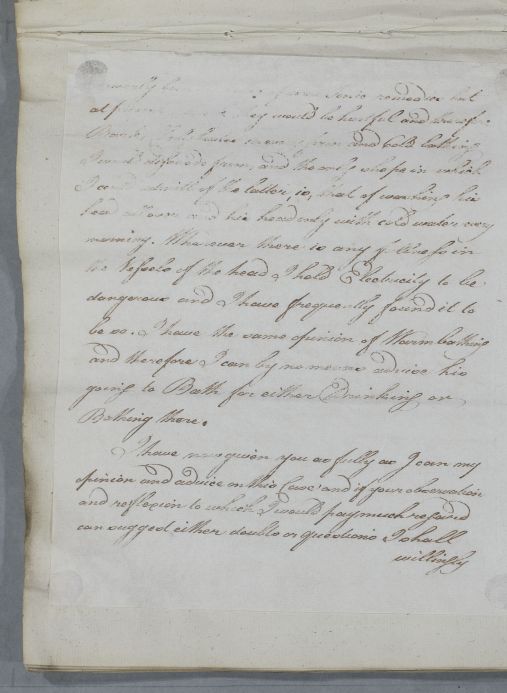 remedies but
at they would be hurtful and therefore
and Cold bathing
I would from, and the only shape in which
I could admitt of the latter, is, that of washing his
head and his head only with cold water every
morning. Wherever there is any fullness in
the Vessels of the head I hold Electricity to be
dangerous and I have frequently found it to
be so. I have the same opinion of Warm bathing
and therefore I can by no means advise his
going to Bath for either Drinking or
Bathing there.
I have now given you as fully as I can my
opinion and advice on this Case and if your observation
and reflexion to which I would pay much regard
can suggest either doubts or questions I shall
willingly